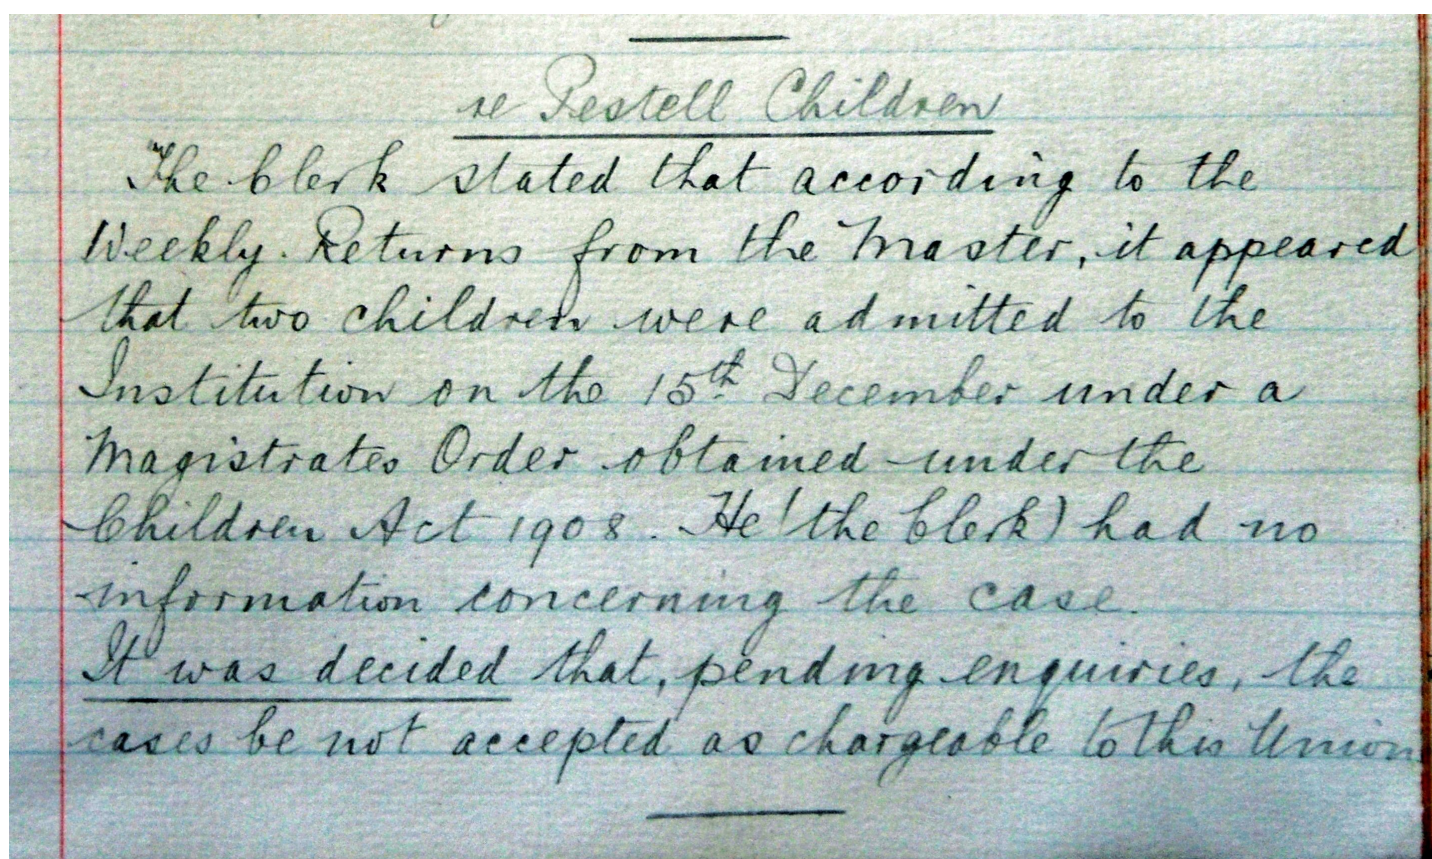 re Pestell Children
The Clerk stated that according to the
Weekly Returns from the Master, it appeared
that two children were admitted to the
Institution on the 15th December under a
Magistrates Order obtained under the
Children Act 1908. He (the Clerk) had no
information concerning the case.
It was decided that, pending enquiries, the
cases be not accepted as chargeable to this Union